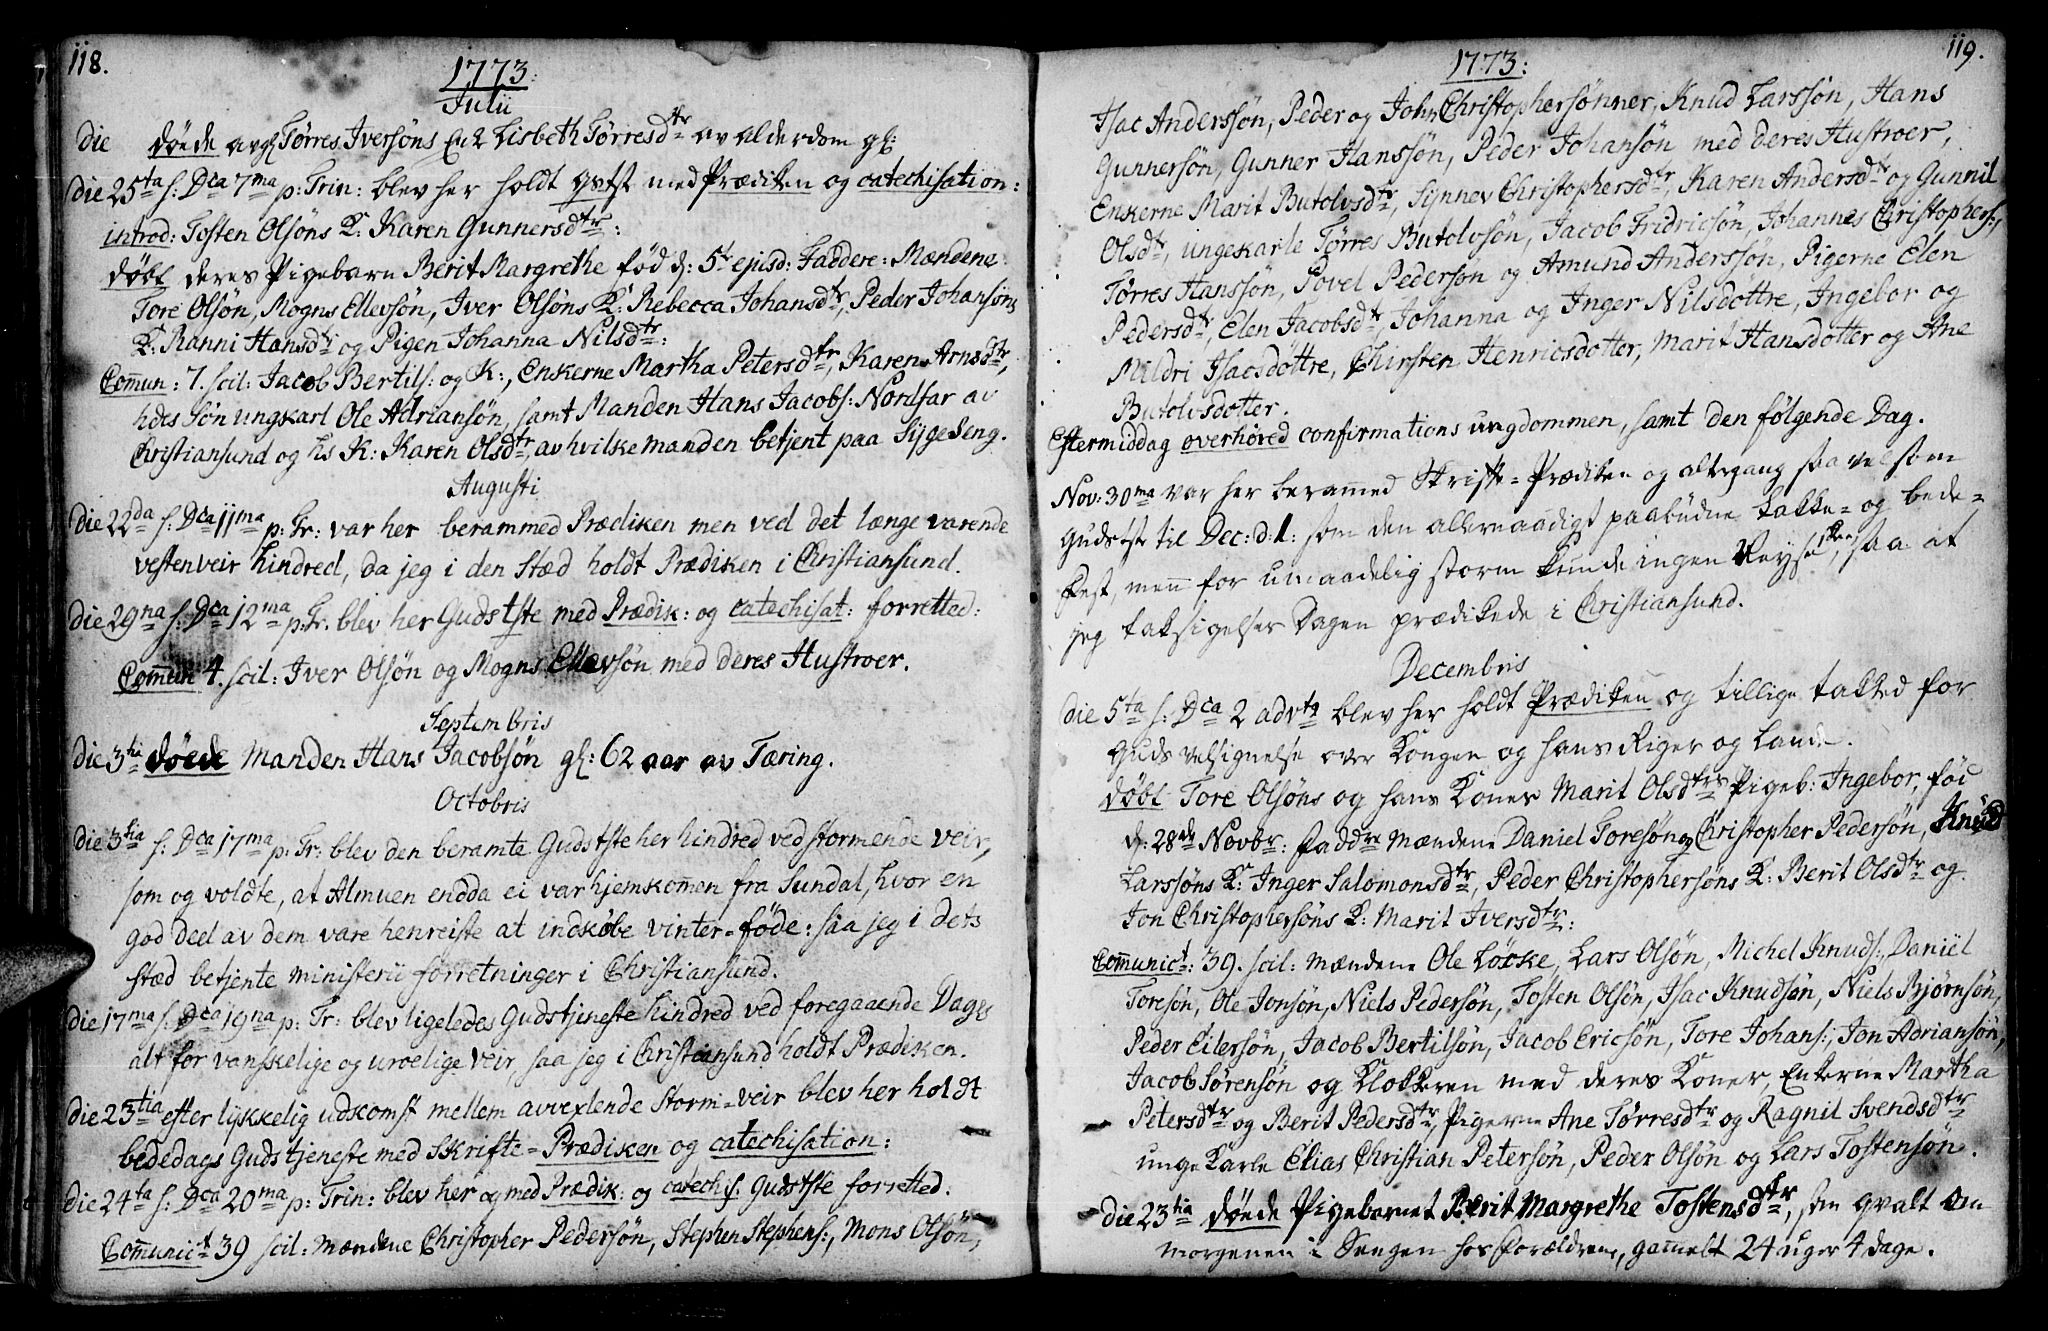 118.
1773:
Julii
Die døede avgl Tørres Iversøns Enke Lisbeth Tørresdtr av alderdom gl:
Die 25ta s: Dca 7ma p: Trin: blev her holdt gvtst med Prædiken og catechisation:
introd: Tosten Olsøns K: Karen Gunnersdtr:
døbt deres Pigebarn Berit Margrethe fød d: 5t ejusd: Faddere: Mændene
Tore Olsøn, Mogns Ellevsøn, Iver Olsøns K: Rebecca Johansdtr, Peder Johansøns
K: Ranni Hansdtr og Pigen Johanna Nilsdtr:
Com̄un: 7. scil: Jacob Bertils: og K:, Enkerne Martha Petersdtr, Karen Arnsdtr,
hdes Søn ungkarl Ole Adriansøn, samt Manden Hans Jacobs: Nordfar av
Christiansund og hs K: Karen Olsdtr, av hvilke manden betjent paa Syge Seng.
Augusti
Die 22da s: Dca 11ma p: Tr: var her berammed Prædiken men ved det længe varende
vestenveir hindred, da jeg i den Stæd holdt Prædiken i Christiansund.
Die 29na s: Dca 12ma p: Tr. blev her Gudstste med Prædik: og catechisat: forretted:
Com̄un 4. scil: Iver Olsøn og Mogns Ellevsøn med deres Hustroer.
Septembris
Die 3tia døede Manden Hans Jacobsøn gl: 62 aar av Tæring.
Octobris
Die 3tia s: Dca 17ma p: Tr: blev den beramte Gudstste her hindred ved stormende veir,
som og voldte, at Almuen endda ei var hjemkom̄en fra Sundal, hvor en
god deel av dem vare henreiste at indkøbe vinter-føde: saa jeg i dets
stæd betjente ministerii forretninger i Christiansund.
Die 17ma s: Dca 19na p: Tr: blev ligeledes Gudstjeneste hindred ved foregaaende Dages
alt for vanskelige og uroelige veir, saa jeg i Christiansund holdt Prædiken.
Die 23tia efter lykkelig udkomst mellem avvexlende Storm-veir blev her holdt
bededags Gudstjeneste med Skrifte-Prædiken og catechisation:
Die 24ta s: Dca 20ma p: Trin: blev her og med Prædik: og catechis. Gudstste forretted.
Com̄unict 39 scil: Mændene Christopher Pedersøn, Stephen Stephens:, Mons Olsøn,
119.
1773:
Isac Anderssøn, Peder og John Christophersønner, Knud Larssøn, Hans
Gunnersøn, Gunner Hanssøn, Peder Johansøn med deres Hustroer,
Enkerne Marit Butolvsdtr, Synnev Christophersdtr, Karen Andersdtr og Gunnil
Olsdtr, ungekarle Tørres Butolvsøn, Jacob Fridricsøn, Johannes Christophers:,
Tørres Hanssøn, Povel Pedersøn og Amund Anderssøn, Pigerne Elen
Pedersdtr, Elen Jacobsdtr, Johanna og Inger Nilsdøttre, Ingebor og
Mildri Isacsdøttre, Chirsten Henricsdotter, Marit Hansdotter og Ane
Butolvsdotter.
Eftermiddag overhøred confirmations ungdommen, samt den følgende Dag.
Nov: 30ma var her beram̄ed Skrift-Prædiken og altergang saavelsom
Gudstste til Dec: d: 1: som den allernaadigst paabudne Takke- og bede-
Fest, men̄ for umaadelig storm kunde ingen Reyse skee, saa at
jeg taksigelses Dagen prædikede i Christiansund.
Decembris
Die 5ta s: Dca 2 advts blev her holdt Prædiken og tillige takked for
Guds velsignelse over Kongen og hans Riger og Lande.
døbt Tore Olsøns og hans Kones Marit Olsdtrs Pigeb: Ingebor, fød
d: 28de Novbr: Faddre Mændene Daniel Toresøn og Christopher Pedersøn, Knud
Larssøns K: Inger Salomonsdtr, Peder Christophersøns K: Berit Olsdtr og
Jon Christophersøns K: Marit Iversdtr:
Com̄unict: 39. scil: Mændene Ole Løcke, Lars Olsøn, Michel Knuds:, Daniel
Toresøn, Ole Jonsøn, Niels Pedersøn, Tosten Olsøn, Isac Knudsøn, Niels Bjørnsøn,
Peder Eilersøn, Jacob Bertilsøn, Jacob Ericsøn, Tore Johans:, Jon Adriansøn,
Jacob Sørensøn og Klokkeren med deres Koner, Enkerne Martha
Petersdtr og Berit Pedersdtr, Pigerne Ane Tørresdtr og Ragnil Svendsdtr
unge Karle Elias Christian Petersøn, Peder Olsøn og Lars Tostensøn.
Die 23tia døede Pigebarnet Berit Margrethe Tostensdtr, som qvalt om
morgenen i Sengen hos Forældrene, gam̄elt 24 uger 4 dage.